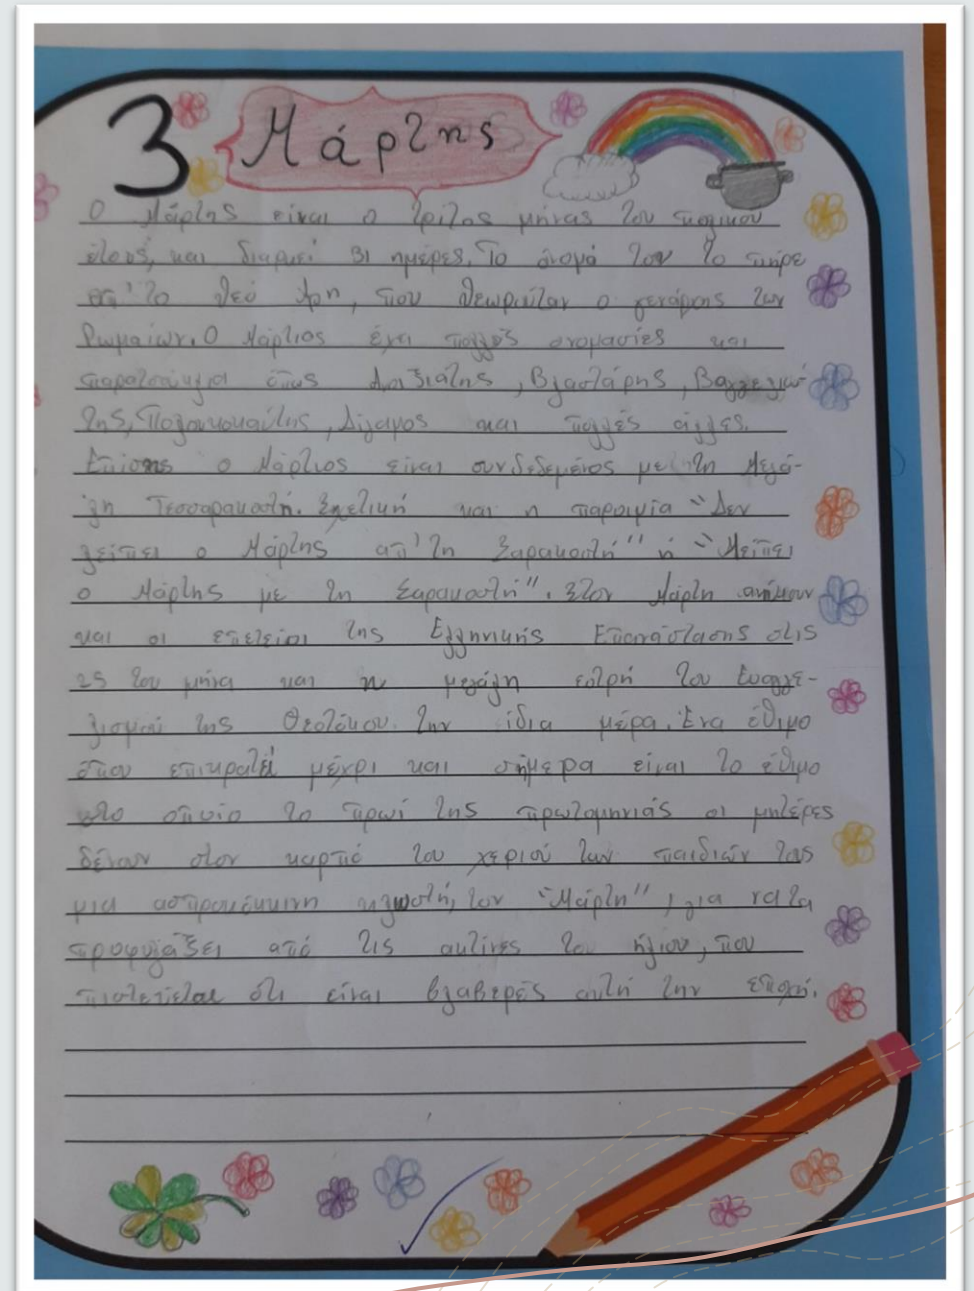 3 Μάρτης
Ο Μάρτης είναι ο τρίτος μήνας του πολιτικού
έτους, και διαρκεί 31 ημέρες. Το όνομά του το πήρε
απ' το θεό Άρη, που θεωρούταν ο γενάρχης των
Ρωμαίων. Ο Μάρτιος έχει πολλές ονομασίες και
παρατσούκλια όπως Ανοιξιάτης, Βλαστάρης, Βαγγελιώ-
της, Παλουκοκαύτης, Δίγαμος και πολλές άλλες.
Επίσης ο Μάρτιος είναι συνδεδεμένος με τη Μεγά-
λη Τεσσαρακοστή. Σχετική και η παροιμία "Δεν
λείπει ο Μάρτης απ' τη Σαρακοστή" ή "Λείπει
ο Μάρτης με τη Σαρακοστή". Στον Μάρτη ανήκουν
και οι επετείοι της Ελληνικής Επανάστασης στις
25 του μήνα και η μεγάλη εορτή του Ευαγγε-
λισμού της Θεοτόκου την ίδια μέρα. Ένα έθιμο
όπου επικρατεί μέχρι και σήμερα είναι το έθιμο
στο οποίο το πρωί της πρωτομηνιάς οι μητέρες
δένουν στον καρπό του χεριού των παιδιών τους
μια ασπροκόκκινη κλωστή, τον "Μάρτη", για να τα
προφυλάξει από τις ακτίνες του ήλιου, που
πιστεύεται ότι είναι βλαβερές αυτή την εποχή.